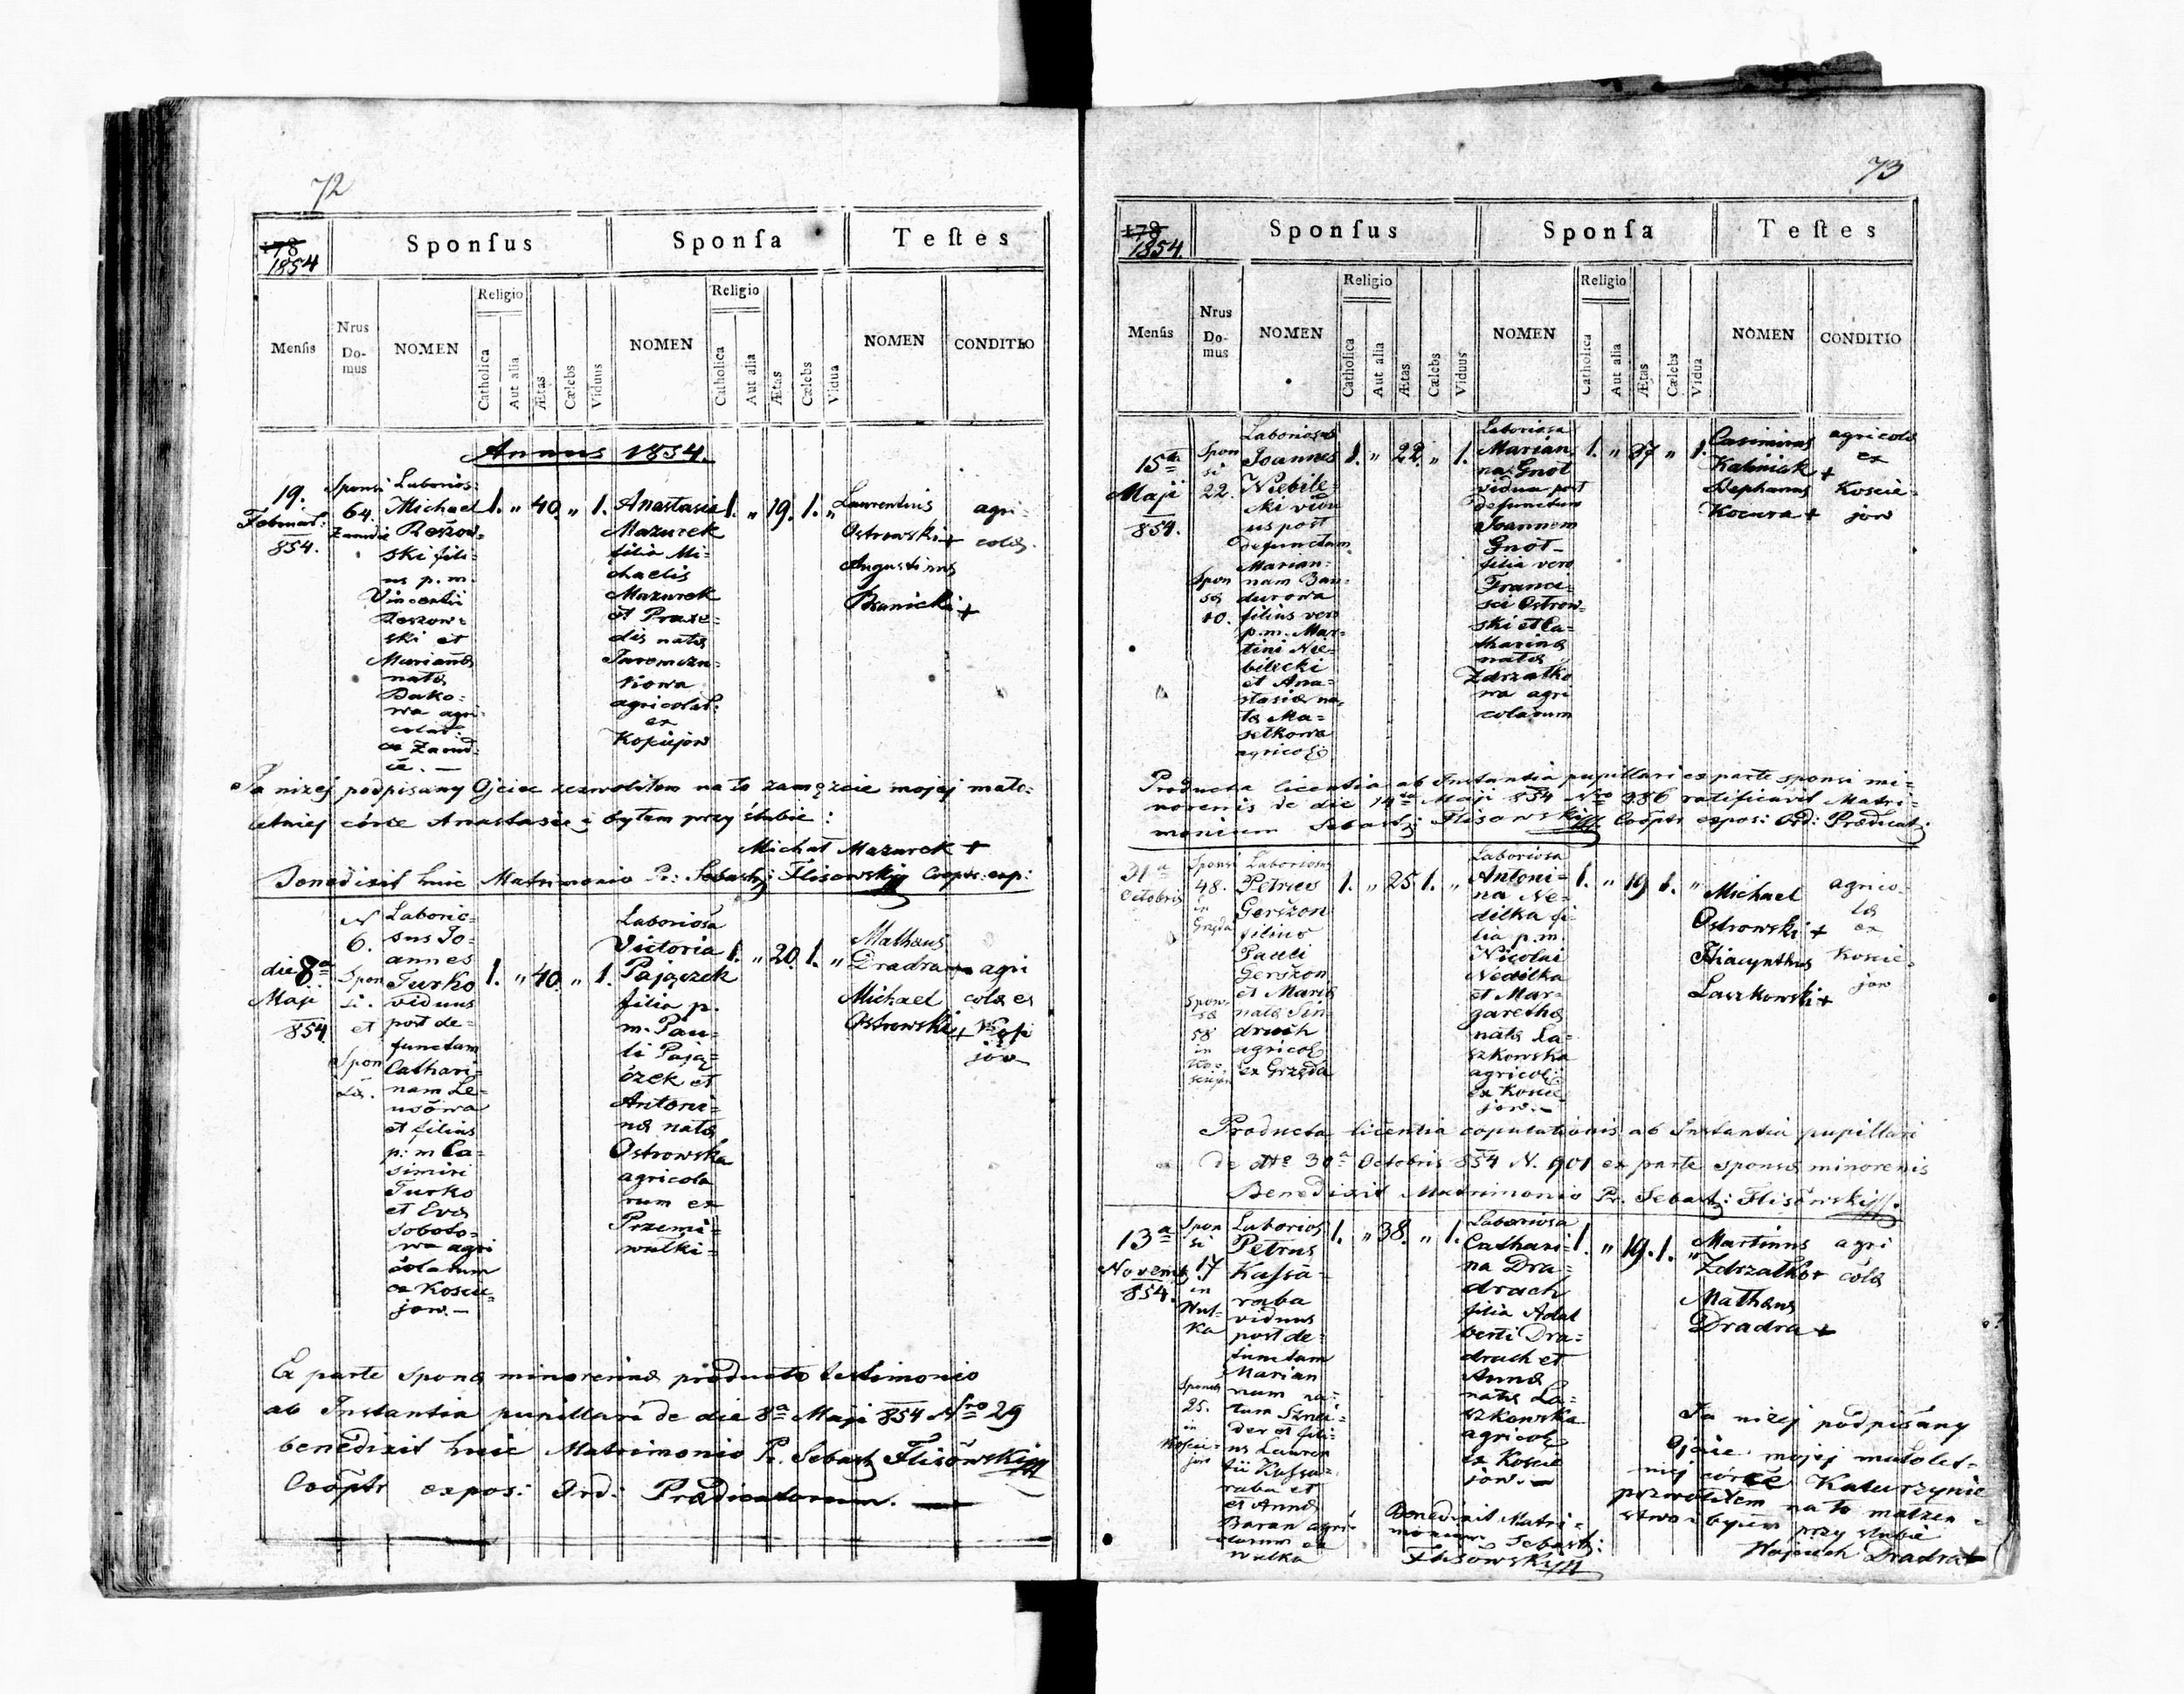 72
178
1854
Sponſus
Sponſa
Teſtes
Menſis
Nrus
Do-
mus
NOMEN
Religio
Catholica
Aut alia
Ætas
Cælebs
Viduus
NOMEN
Religio
Catholica
Aut alia
Ætas
Cælebs
Vidua
NOMEN
CONDITIO
Annus 1854.
19.
Februar:
854.
Sponsi
64.
Laborios:
Michael
ski fili-
us p. m.
Vincentii
Reszow-
ski et
Marianna
nata
Bako-
wa agri-
colar:
ex Zarud-
1. „ 40. „ 1.
Anastasia
Mazurek
filia Mi-
chaelis
Mazurek
et Praxe-
dis nata
agricolar:
ex
1. „ 19. 1. „
Laurentius
Ostrowski +
Augustinus
Branicki +
agri-
colæ.
Ja niżej podpisany Ojciec zezwoliłem na to zamęzcie mojej mało-
letniej córce Anastasie i byłem przy ślubie:
Michał Mazurek +
Benedixit huic Matrimonio Pr: Sebast: Flisowski Cooptr: exp:
die 8a
Maji
854
N
6.
Spon
si.
et
Spon
sæ.
Laborio-
sus Jo-
annes
Turko
viduus
post de-
functam
Cathari-
nam Le-
et filius
p: m Ca-
simiri
Turko
et Eva
Sobolo-
wa agri
colarum
ex Koscie-
jow. —
1. „ 40. „ 1.
Laboriosa
Victoria
Pajączek
filia p.
m. Pau-
li Pają-
czek et
Antoni-
na nata
Ostrowska
agricola
rum ex
Przemi-
wułki-
1. „ 20. 1. „
Mathæus
Dradra
Michael
Ostrowski +
agri
colæ ex
jow
Ex parte sponsa minorenna producto testimonio
ab Instantia pupillari de die 8a Maji 854 Nro 29
benedixit huic Matrimonio Pr. Sebast Flisowski
Cooptr expos: Ord: Prædicatorum. —
73
178
1854.
Sponſus
Sponſa
Teſtes
Menſis
Nrus
Do-
mus
NOMEN
Religio
Catholica
Aut alia
Ætas
Cælebs
Viduus
NOMEN
Religio
Catholica
Aut alia
Ætas
Cælebs
Vidua
NOMEN
CONDITIO
15ta
Maji
854.
Spon
si
22.
Spon
sæ
10.
Laboriosus
Joannes
Niebile-
cki vidu
us post
defunctam
Marian-
nam Ban-
durowa
filius vero
p. m. Mar-
tini Nie-
bilecki
et Ana-
stasiæ na-
ta Ma-
selkowa
agricol:
1. „ 22. „ 1.
Laboriosa
Marian
na Gnot
vidua post
defunctum
Joannem
Gnot-
filia vero
Franci-
sci Ostrow-
ski et Ca-
tharina
nata
Zdrzalko
wa agri
colarum
1. „ 37 „ 1.
Casimirus
Kaliniak +
Stephanus
Kocura +
agricolæ
ex
Koscie-
jow
Producta licentia ab Instantia pupillari ex parte sponsi mi-
norenis de die 14ta Maji 854 Nro 386 ratificavit Matri-
monium Sebast: Flisowski Cooptr expos: Ord: Prædicat:
31a
Octobris
Sponsi
48.
in
Grzęda
Spon-
sæ
58
in
Laboriosus
Petrus
Gerszon
filius
Pauli
Gerszon
et Maria
nata Sin-
druch
agricol
ex Grzęda
1. „ 25 1. „
Laboriosa
Antoni-
na Ne-
dilka fi-
lia p. m.
Nicolai
Nedilka
et Mar-
garetha
nata La-
szkowska
agricol:
ex Koscie
jow. —
1. „ 19 1. „
Michael
Ostrowski +
Hiacynthus
Laszkowski +
agrico-
læ
ex
Koscie-
jow
Producta licentia copulationis ab Instantia pupillari
de dtto 30a Octobris 854 N. 901 ex parte sponsa minorenis
Benedixit Matrimonio Pr. Sebast: Flisowski
13a
Novemb
854.
Spon
si
17
in
Wul-
ka
Sponsæ
25.
in
Koscie-
jow
Laborios
Petrus
Kassa-
raba
viduus
post de-
functam
Marian
nam na-
tam Sznei-
der et fili-
us Lauren
tii Kassa-
raba et
et Anna
Baran agri-
colarum ex
Wulka
1. „ 38. „ 1.
Laboriosa
Cathari-
na Dra-
drach
filia Adal
berti Dra-
drach et
Anna
nata La-
szkowska
agricol
ex Koscie
jow. —
1. „ 19. 1. „
Martinus
Zdrzalko +
Mathæus
Dradra +
agri
colæ
Benedixit Matri-
monium Sebast:
Flisowski
Ja niżej podpisany
Ojciec mojej małolet-
niej córce Katarzynie
pozwoliłem na to małżen-
stwo i byłem przy ślubie
Wojciech Dradra +